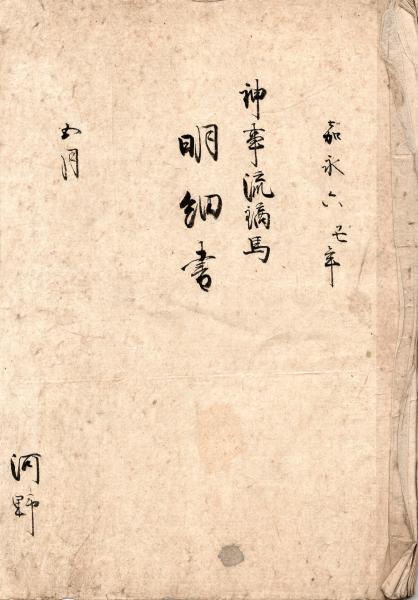 嘉永六丑年
神事流鏑馬
明細書
五月
河野